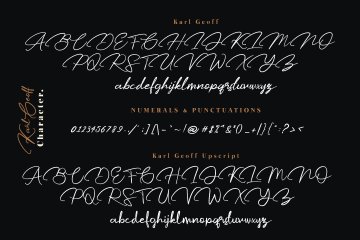 Karl Geoff
ABCDEFGHIJKLMNO
PQRSTUVWXYZ
abcdefghijklmnopqrstuvwxyz
Karl Geoff
Character.
NUMERALS & PUNCTUATIONS
Karl Geoff Upscript
ABCDEFGHIJKLMNO
PQRSTUVWXYZ
abcdefghijklmnopqrstuvwxyz